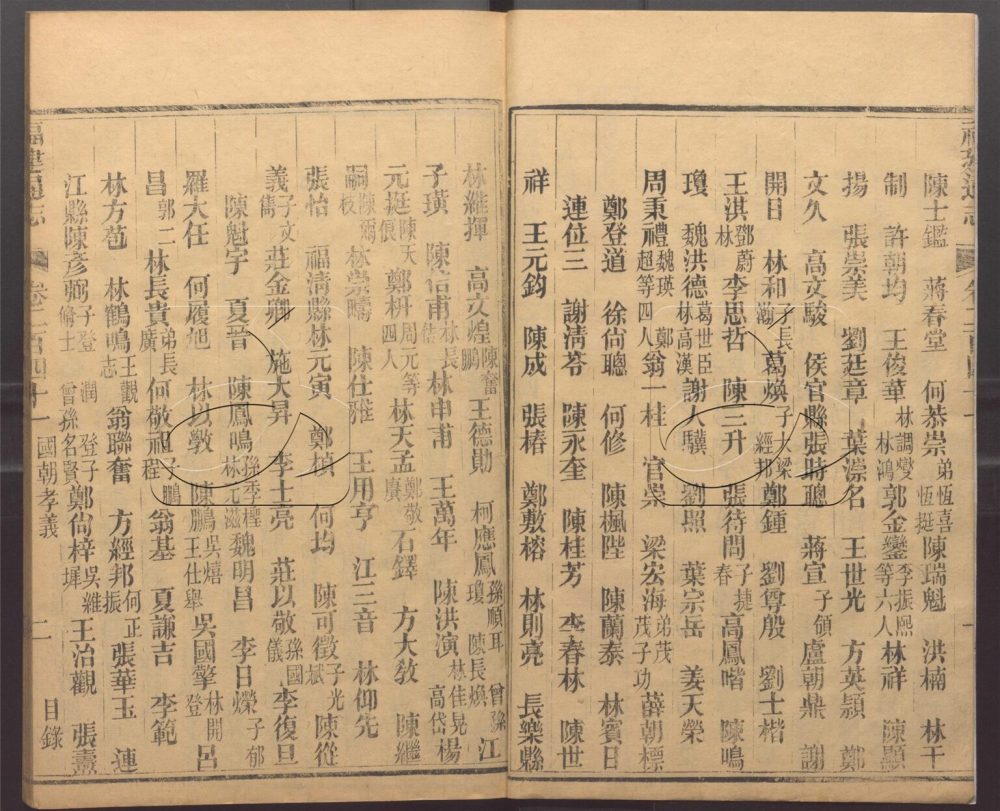 陳士鑑 蔣春堂 何恭崇弟恆喜恆挺陳瑞魁 洪楠 林干
制 許朝均 王俊華林調燮林鴻郭金鑾李振熙等六人林祥 陳顯
揚 張崇美 劉廷章 葉滐名 王世光 方英顥 鄭
文久 高文駿 侯官縣張時聰 蔣宣子頎盧朝鼎 謝
開日 林和子長瀚葛煥子大梁經邦鄭鍾 劉尊殷 劉士楷
王淇鄧蔚林李思哲 陳三升 張待問子捷春高鳳喈 陳鳴
瓊 魏洪德葛世臣林高漢謝人驥 劉照 葉宗岳 姜天榮
周秉禮魏瑛超等四人鄭翁一桂 官崇 梁宏海弟茂茂子功薛朝標
鄭登道 徐尚聰 何修 陳楓陛 陳蘭泰 林賓日
連位三 謝清苓 陳永奎 陳桂芳 李春林 陳世
祥 王元鈞 陳成 張椿 鄭敷榕 林則亮 長樂縣
林維揮 高文煌陳奮鵬王德勛 柯應鳳孫順耳瓊 陳長煥曾孫江
子璜 陳信甫林長僖林申甫 王萬年 陳洪演林佳晃高岱楊
元挺陳天俍鄭枅周元等四人林天孟鄭敬賡石鐸 方大敎 陳繼
嗣陳霈枝林崇疇 陳仕雅 王用亨 江三音 林仰先
張怡 福淸縣林元寅 鄭楨 何均 陳可徵子光斌陳從
義子文儁莊金卿 施大昇 李士亮 莊以敬孫國儀李復旦
陳魁宇 夏晉 陳鳳鳴孫季樫林元滋魏明昌 李日爃子郁
羅大任 何履旭 林以斆 陳鵬吳熺王仕舉吳國擎林開登呂
昌郭二林長貴弟長廣何敬祖子鵬程翁基 夏謙吉 李範
林方苞 林鶴鳴王觀志翁聯奮 方經邦何正振張華玉 連
江縣陳彥弼子登脩士潤曾孫登子名賢鄭尚梓吳維墀王治觀 張熹
福建通志 卷二百四十一 國朝孝義 二 目錄